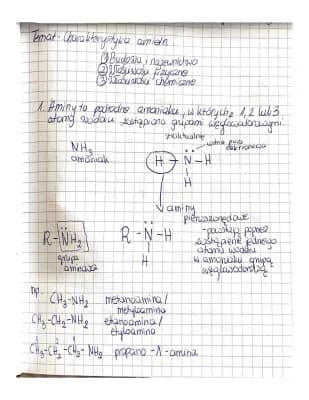 Temat: Charakterystyka amin.
① Budowa i nazewnictwo
② Właściwości fizyczne
③ Właściwości chemiczne
1. Aminy to pochodne amoniaku, w których 1, 2 lub 3
atomy wodoru zastąpiono grupami węglowodorowymi
NH3
amoniak
wolna para
elektronowa
H - N - H
H
aminy
pierwszorzędowe
- powstają poprzez
zastąpienie jednego
atomu wodoru
w amoniaku grupą
węglowodorową
R - NH2
grupa
aminowa
R - N - H
H
np.
CH3-NH2 metanoamina/
metyloamina
CH3-CH2-NH2 etanoamina/
etyloamina
3 2 1
CH3-CH2-CH2-NH2 propano-1-amina